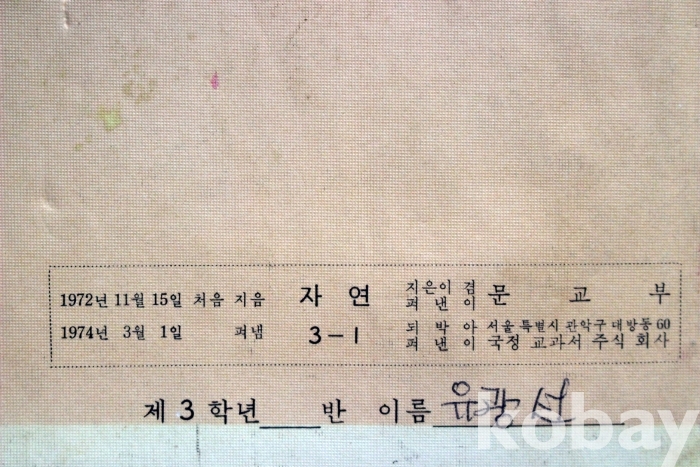 1972년 11월 15일 처음 지음 자 연 지은이 겸 펴 낸 이 문 교 부
1974년 3월 1일 펴냄 3-1 되 박 아 펴 낸 이 서울 특별시 관악구 대방동 60 국정 교과서 주식 회사
제 3 학년 반 이름 유광선
kobay